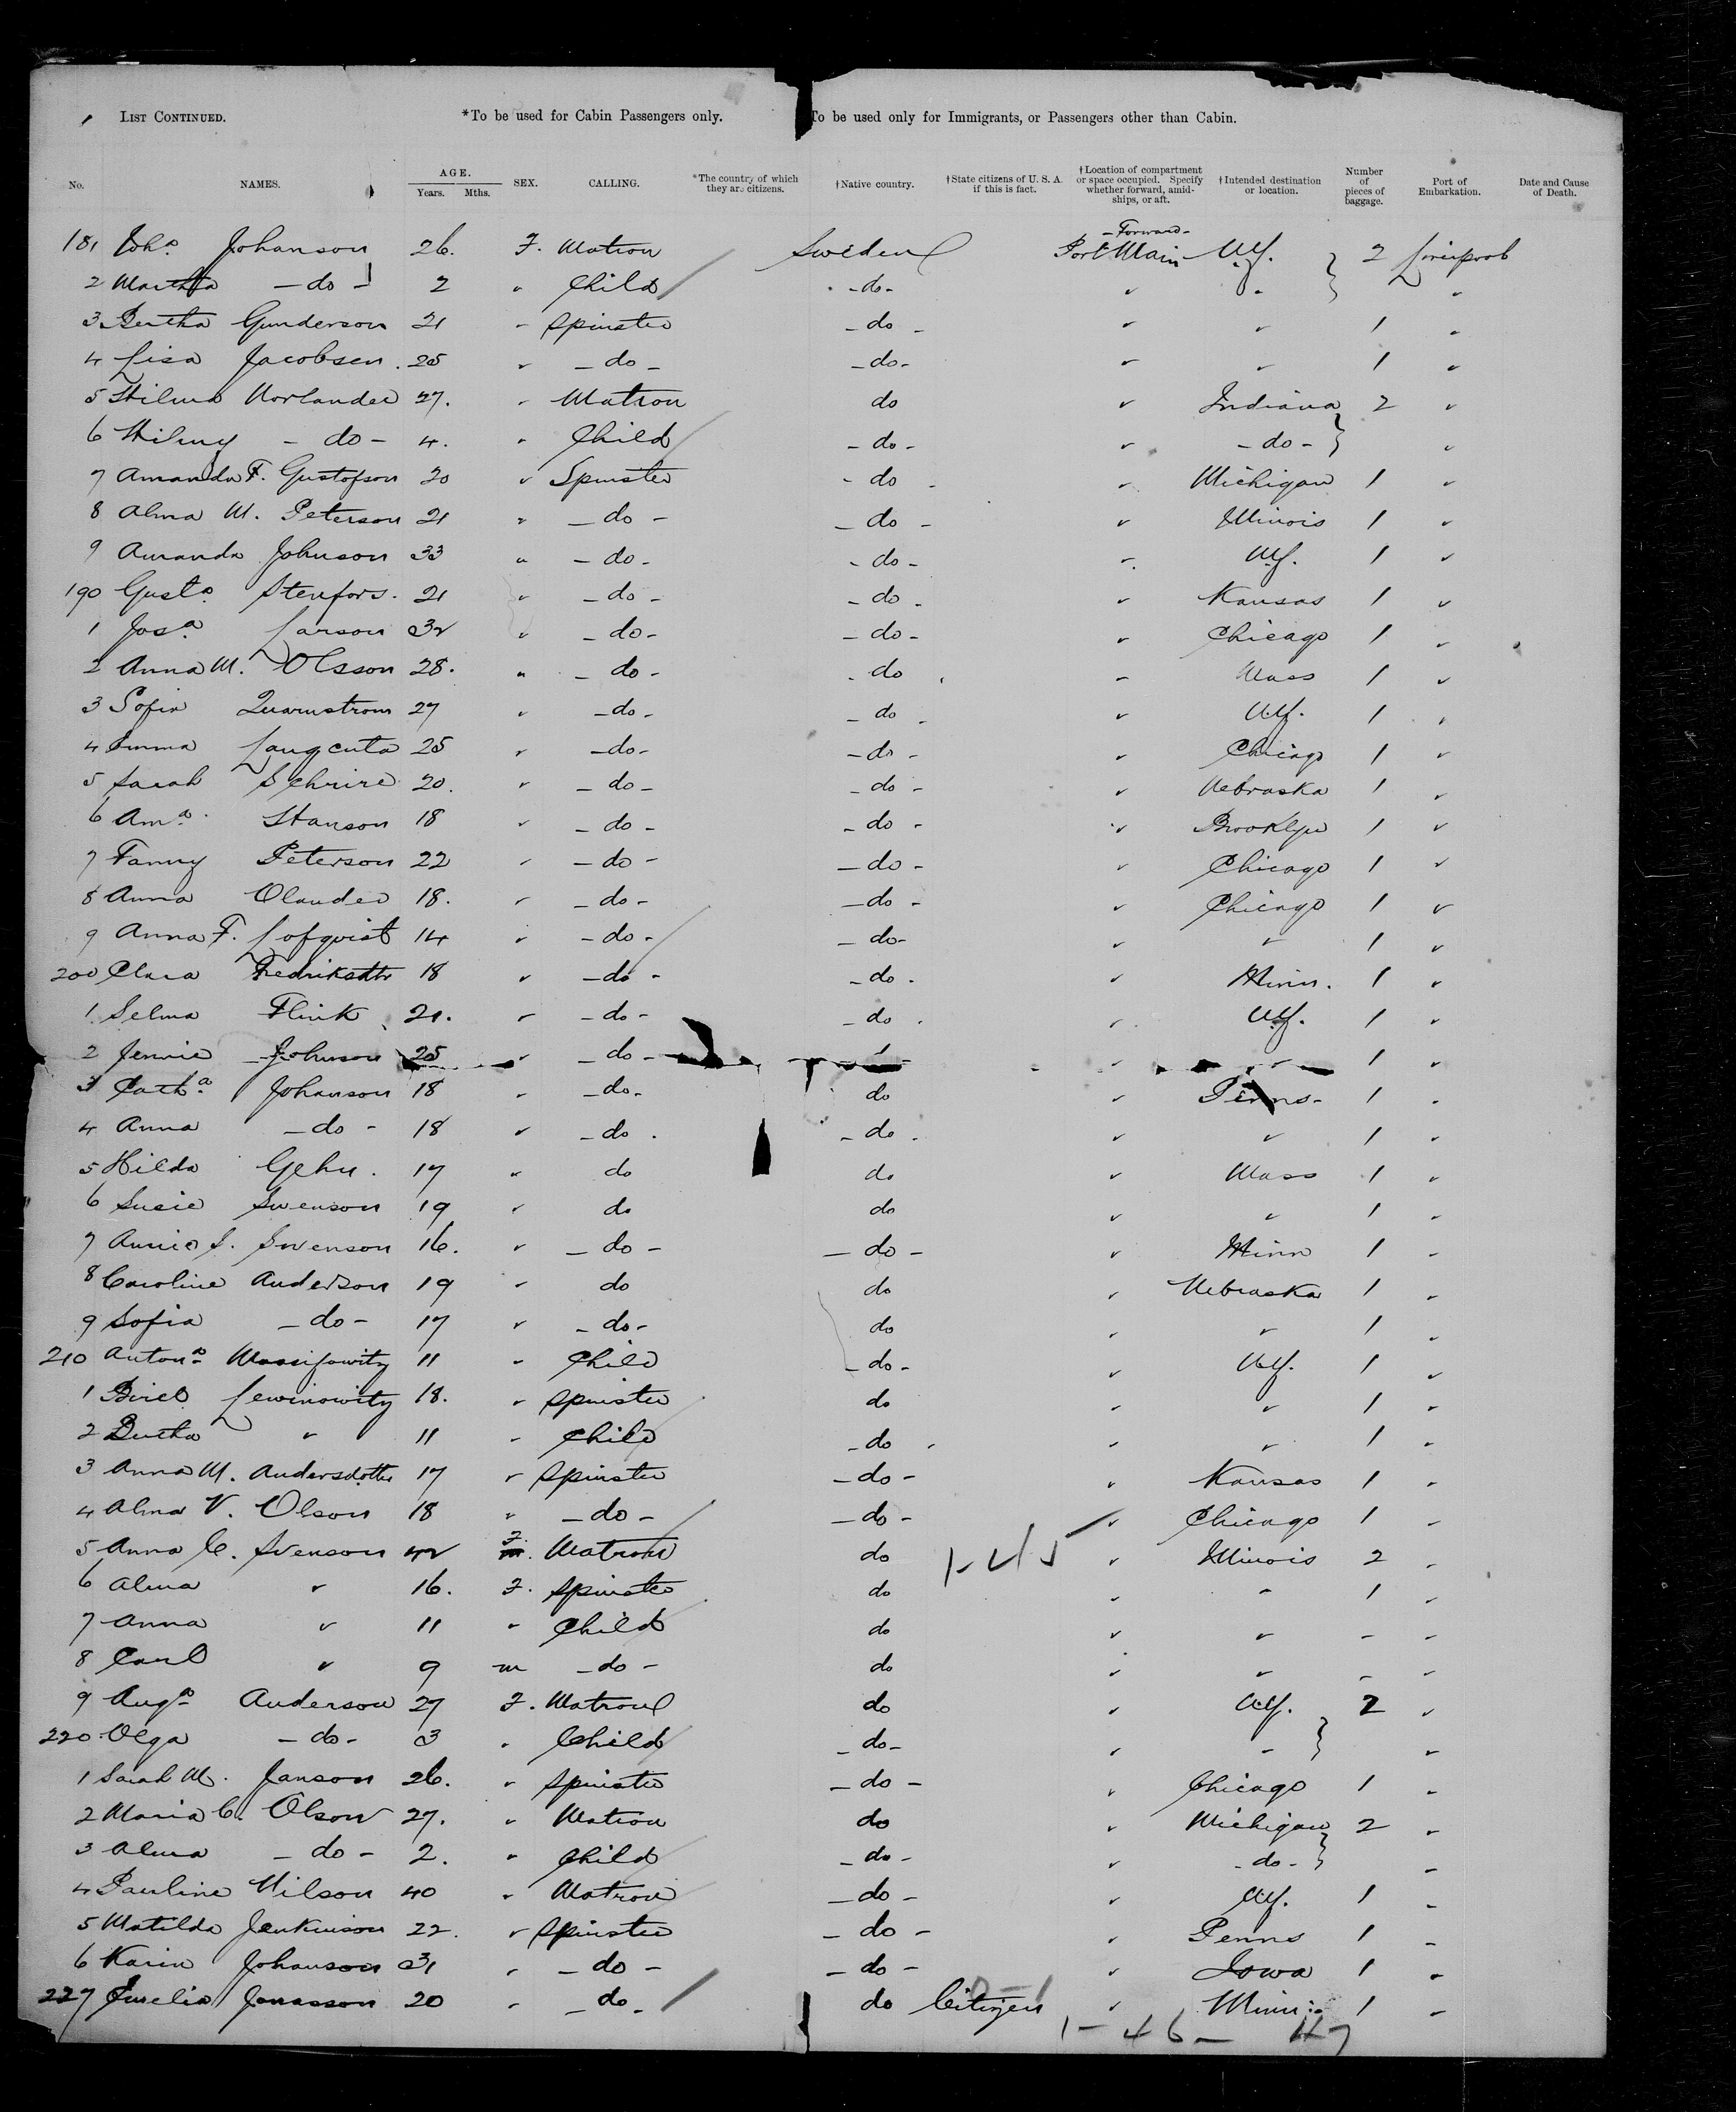 LIST CONTINUED. *To be used for Cabin Passengers only. To be used only for Immigrants, or Passengers other than Cabin.
No. NAMES. AGE. Years. Mths. SEX. CALLING. *The country of which they are citizens. †Native country. †State citizens of U. S. A. if this is fact. †Location of compartment or space occupied. Specify whether forward, amidships, or aft. †Intended destination or location. Number of pieces of baggage. Port of Embarkation. Date and Cause of Death.
181 Joha Johanson 26. F. Matron Sweden Forward Port Main N.Y. 2 Liverpool
2 Martha - do - 2 " Child - do - " " "
3 Bertha Gunderson 21 " Spinster - do - " " 1 "
4 Lisa Jacobsen. 25 " - do - - do - " " 1 "
5 Hilma Norlander 27. " Matron do " Indiana 2 "
6 Hilmy - do - 4. " Child - do - " - do - "
7 Amanda F. Gustofson 20 " Spinster - do - " Michigan 1 "
8 Alma M. Peterson 21 " - do - - do - " Illinois 1 "
9 Amanda Johnson 33 " - do - - do - " N.Y. 1 "
190 Gusta Stenfors. 21 " - do - - do - " Kansas 1 "
1 Josa Larson 32 " - do - - do - " Chicago 1 "
2 Anna M. Olsson 28. " - do - - do " Mass 1 "
3 Sofia Quarnstrom 27 " - do - - do - " N.Y. 1 "
4 Emma 25 " - do - - do - " Chicago 1 "
5 Sarah Schrire 20. " - do - - do - " Nebraska 1 "
6 Ama Hanson 18 " - do - - do - " Brooklyn 1 "
7 Fanny Peterson 22 " - do - - do - " Chicago 1 "
8 Anna Olander 18. " - do - - do - " Chicago 1 "
9 Anna F. Lofqvist 14 " - do - - do - " " 1 "
200 Clara Fredriksdtr 18 " - do - - do - " Minn. 1 "
1 Selma Flink 21. " - do - - do " N.Y. 1 "
2 Jennie Johnson 25 " - do - " " 1 "
3 Catha Johanson 18 " - do - do " Penns - 1 "
4 Anna - do - 18 " - do - do " " 1 "
5 Hilda Gehn. 17 " do do " Mass 1 "
6 Susie Swenson 19 " do do " " 1 "
7 Annie S. Swenson 16. " - do - - do - " Minn 1 "
8 Caroline Anderson 19 " do do " Nebraska 1 "
9 Sofia - do - 17 " - do - do " " 1 "
210 Antona 11 " Child - do - " N.Y. 1 "
1 Lewinowitz 18. " Spinster do " " 1 "
2 Bertha " 11 " Child - do " " 1 "
3 Anna M. Andersdotter 17 " Spinster - do - " Kansas 1 "
4 Alma V. Olson 18 " - do - - do - " Chicago 1 "
5 Anna C. Svenson 42 F. Matron do " Illinois 2 "
6 Alma " 16. F. Spinster do " " 1 "
7 Anna " 11 " Child do " " - "
8 Carl " 9 m - do - do " " - "
9 Auga Anderson 27 F. Matron do " N.Y. 2 "
220 Olga - do - 3 " Child - do - " " "
1 Sarah M. Janson 26. " Spinster - do - " Chicago 1 "
2 Maria C. Olson 27. " Matron do " Michigan 2 "
3 Alma - do - 2. " Child - do - " - do - "
4 Pauline Nilson 40 " Matron - do - " N.Y. 1 "
5 Matilda Jenkinson 22. " Spinster - do - " Penns 1 "
6 Karin Johanson 31 " - do - - do - " Iowa 1 "
227 Emelia Jonasson 20 " - do - do Citizen " Minn: 1 "
1 - 46 - 47